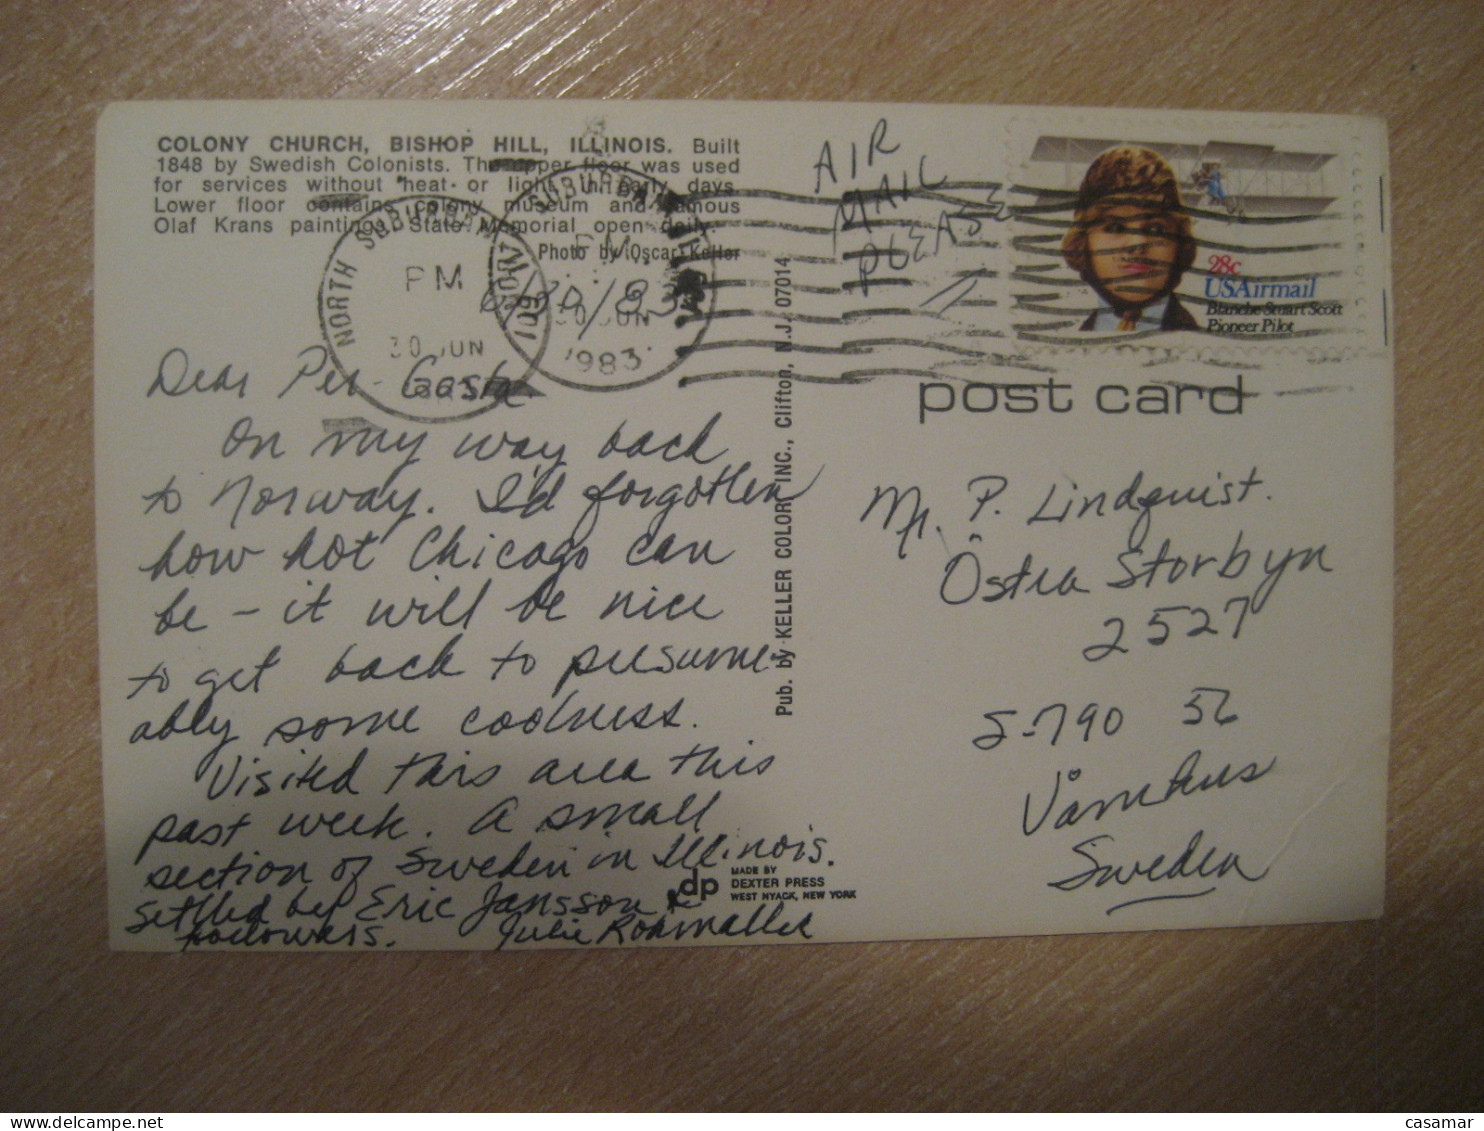 COLONY CHURCH, BISHOP HILL, ILLINOIS. Built
1848 by Swedish Colonists. The upper floor was used
for services without heat or light in early days.
Lower floor contains colony museum and famous
Olaf Krans paintings. State Memorial open daily.
Photo by Oscar Keller
NORTH SUBURBAN
PM
30 JUN
NORTH SUBURBAN
PM
30 JUN
1983
6/30/83
Dear Per-Gosta
On my way back
to Norway. I'd forgotten
how hot Chicago can
be – it will be nice
to get back to presume-
ably some coolness.
Visited this area this
past week. A small
section of Sweden in Illinois.
settled by Eric Jansson &
followers. Julie
Pub. by KELLER COLOR, INC., Clifton, N.J. 07014
dp
MADE BY
DEXTER PRESS
WEST NYACK, NEW YORK
AIR
MAIL
PLEASE
28c
USAirmail
Blanche Stuart Scott
Pioneer Pilot
post card
Mr. P. Lindquist.
Östra Storbyn
2527
S-790 56
Sweden
casamar